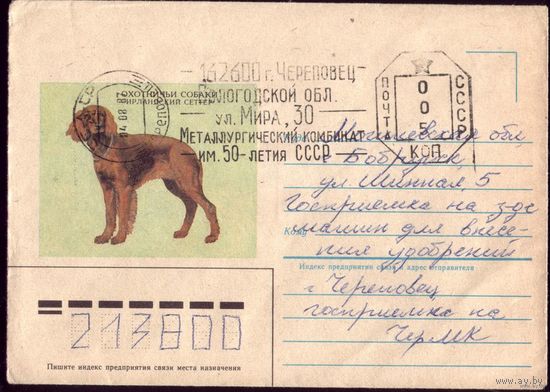 ОХОТНИЧЬИ СОБАКИ
ИРЛАНДСКИЙ СЕТТЕР
04 08 8
162600 г. ЧЕРЕПОВЕЦ
ВОЛОГОДСКОЙ ОБЛ.
УЛ. МИРА, 30
МЕТАЛЛУРГИЧЕСКИЙ КОМБИНАТ
ИМ. 50-ЛЕТИЯ СССР
ПОЧТА
СССР
005
КОП
Могилевская обл
г. Бобруйск
ул. Шинная, 5
Госприемка на з-де
машин для внесе-
Кому
ния удобрений
Индекс предприятия связи и адрес отправителя
г Череповец
госприемка на
ЧерМК
213800
Пишите индекс предприятия связи места назначения
www.ay.by